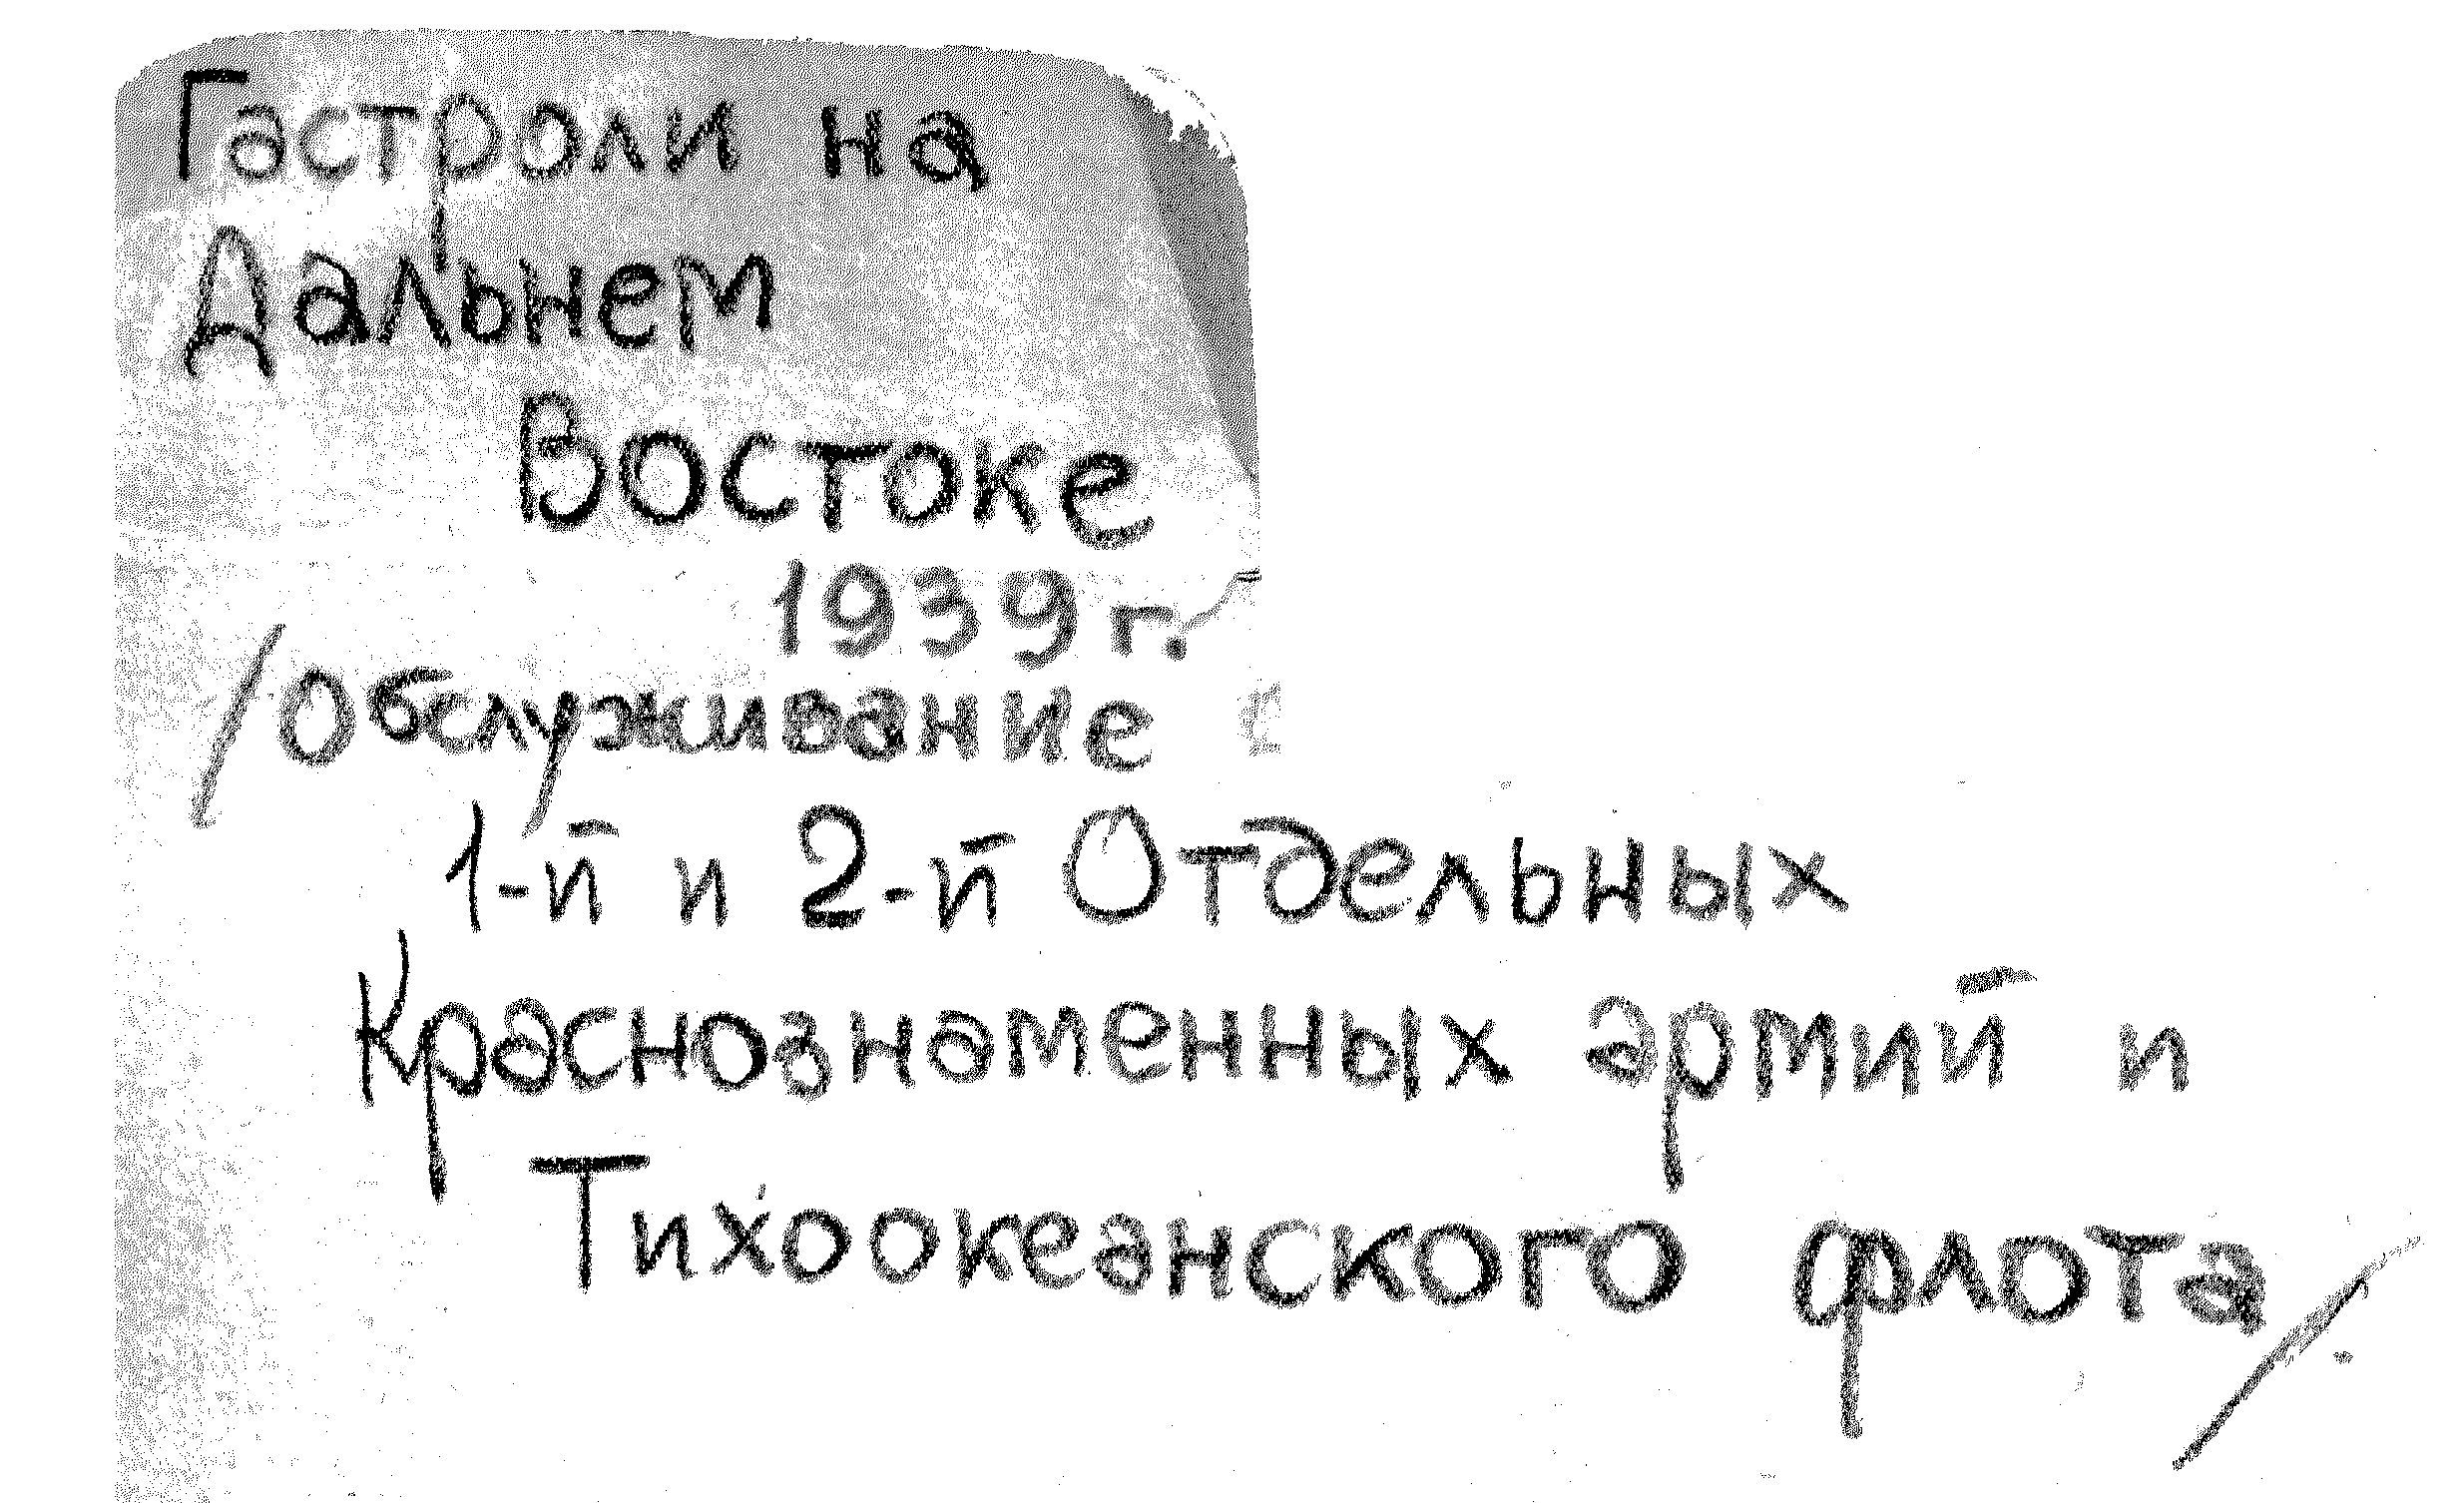 Гастроли на
Дальнем
Востоке
1939 г.
/Обслуживание
1-й и 2-й Отдельных
Краснознаменных армий и
Тихоокеанского флота/